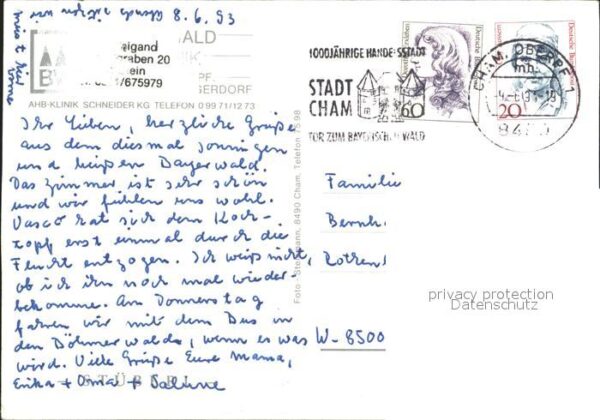 8.6.93
WALD
eigand
graben 20
tein
/675979
GERDORF
AHB-KLINIK SCHNEIDER KG TELEFON 0 99 71/12 73
Ihr Lieben, herzliche Grüße
aus dem diesmal sonnigen
und heißen Bayerwald.
Das Zimmer ist sehr schön
und wir fühlen uns wohl.
Vasco hat sich dem Koch-
topf erst einmal durch die
Flucht entzogen. Ich weiß nicht,
ob ich ihn noch mal wieder-
bekomme. Am Donnerstag
fahren wir mit dem Bus in
den Böhmerwald, wenn es was
wird. Viele Grüße Eure Mama,
Erika + Oma +
STÜBERL
Foto - Stegmann, 8490 Cham, Telefon 75 98
1000JÄHRIGE HANDELSSTADT
STADT
CHAM
TOR ZUM BAYERISCHEN WALD
60
Deutsche Bundespost
20
CHAM, OBERPF 1
mb
Familie
Bernh.
W-8500
privacy protection
Datenschutz